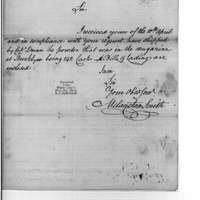 Sir
I received yours of the 10th April
and in compliance with your request have shipped
by Capt. Dunn the powder that was in the magazine
at Brooklyn being 148 Casks & Bills of Lading are
inclosed
I am
Sir
Your Obt Servt
Melancton Smith